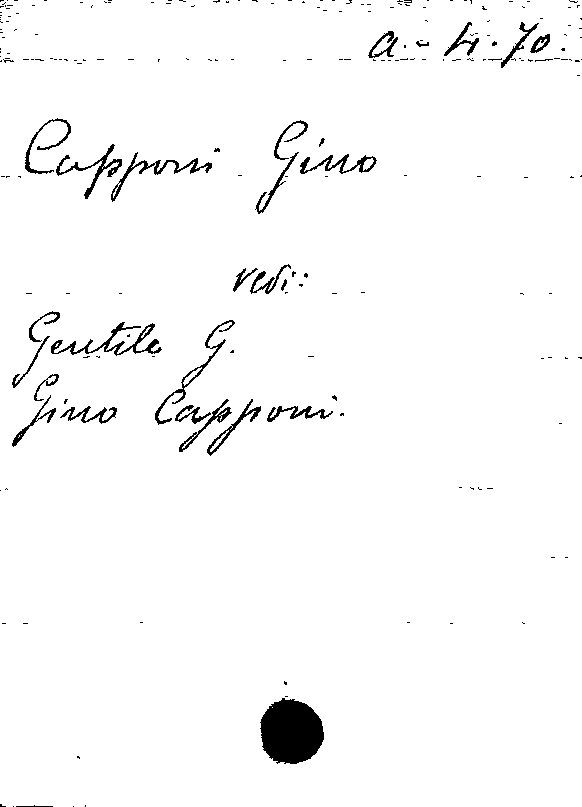 a.- 4.70.
Capponi Gino
vedi:
Gentile G.
Gino Capponi.